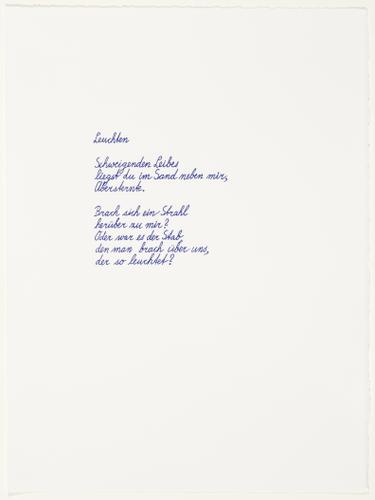 Leuchten
Schweigenden Leibes
liegst du im Sand neben mir,
Übersternte.
Brach sich ein Strahl
herüber zu mir?
Oder war es der Stab,
den man brach über uns,
der so leuchtet?